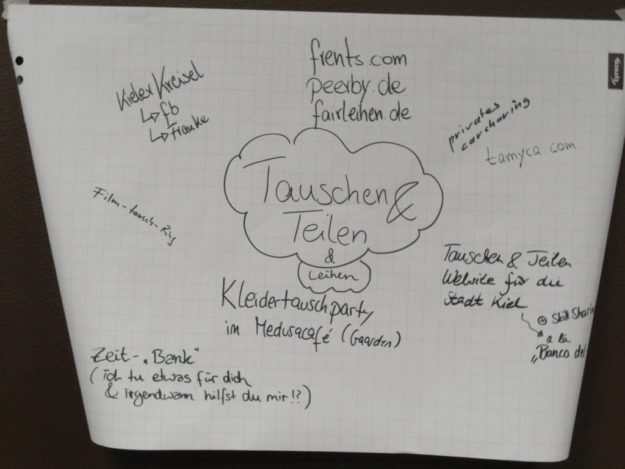 frents.com
peerby.de
fairleihen.de
Kieler Kreisel
↳ fb
↳ Frauke
privates
carcharing
tamyca.com
Film-tausch-
Tauschen &
Teilen
&
Leihen
Tauschen & Teilen
für die
Stadt Kiel
Skill Sharin
a la
"Banco del
Kleidertauschparty
im Medusacafé (Gaarden)
Zeit-„Bank"
(ich tu etwas für dich
& irgendwann hilfst du mir!?)